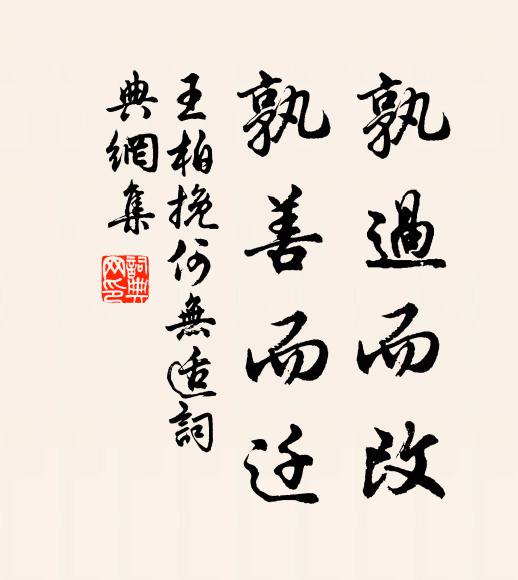 孰過而改
孰善而迁
王柏挽何無适詞
典網集
詞典網印